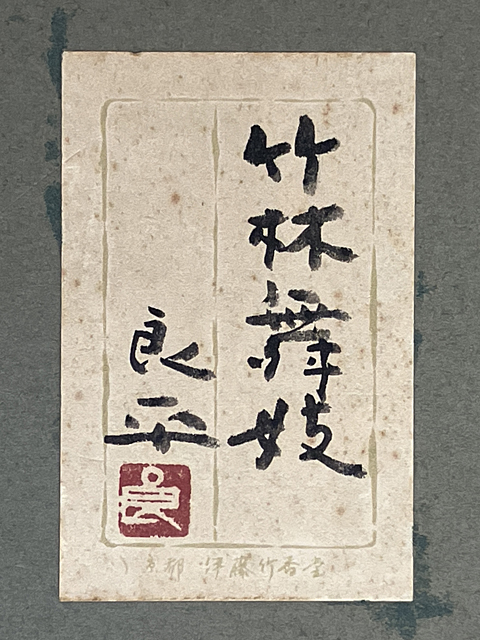 竹林舞妓
良平
良
京都 伊藤竹香堂